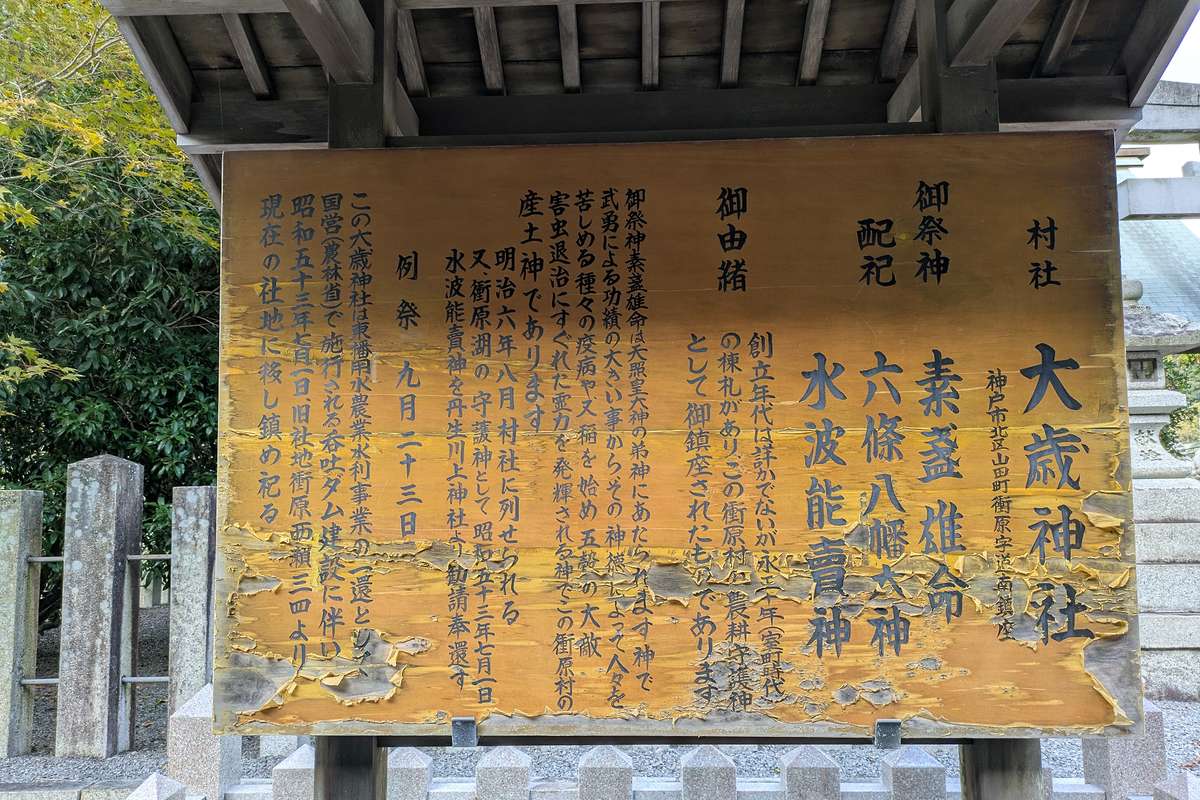 村社 大歳神社
神戸市北区山田町衝原字道南鎮座
御祭神 素盞雄命
配祀 六條八幡大神
水波能賣神
御由緒
創立年代は詳かでないが永正 年(室町時代
の棟札がありこの衝原村の農耕守護神
として御鎮座されたものであります
御祭神素盞雄命は天照皇大神の弟神にあたられます神で
武勇による功績の大きい事からその神徳によって人々を
苦しめる種々の疫病や又稲を始め五穀への大敵
害虫退治にすぐれた霊力を発輝される神でこの衝原村の
産土神であります
明治六年八月村社に列せられる
又、衝原湖の守護神として昭和五十三年七月一日
水波能賣神を丹生川上神社より勧請奉還す
例祭 九月二十三日
この大歳神社は東播用水農業水利事業の一還として
国営(農林省)で施行される呑吐ダム建設に伴い
昭和五十三年七月一日、旧社地衝原西瀬三四より
現在の社地に移し鎮め祀る